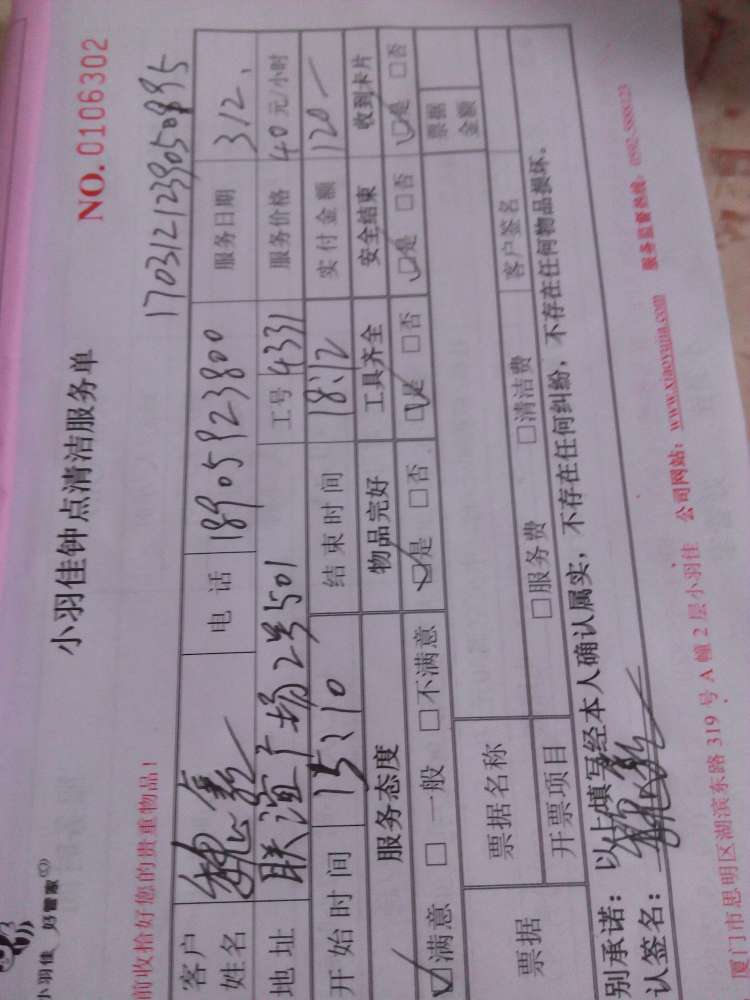 小羽佳 好管家
小羽佳钟点清洁服务单
NO. 0106302
前收拾好您的贵重物品！
1703121239050895
客户姓名 电话 18905923800 服务日期 312.
地址 联谊广场2号501 工号 4331 服务价格 40元/小时
开始时间 15:10 结束时间 18:12 实付金额 120—
服务态度 物品完好 工具齐全 安全结束 收到卡片
☑满意 □一般 □不满意 ☑是 □否 ☑是 □否 ☑是 □否 ☑是 □否
票据 票据名称 票据金额
开票项目 □服务费 □清洁费 客户签名
别承诺：以上填写经本人确认属实，不存在任何纠纷，不存在任何物品损坏。
认签名：
厦门市思明区湖滨东路319号A幢2层小羽佳 公司网站：www.xiaoyujia.com 服务监督热线：0592-5888123